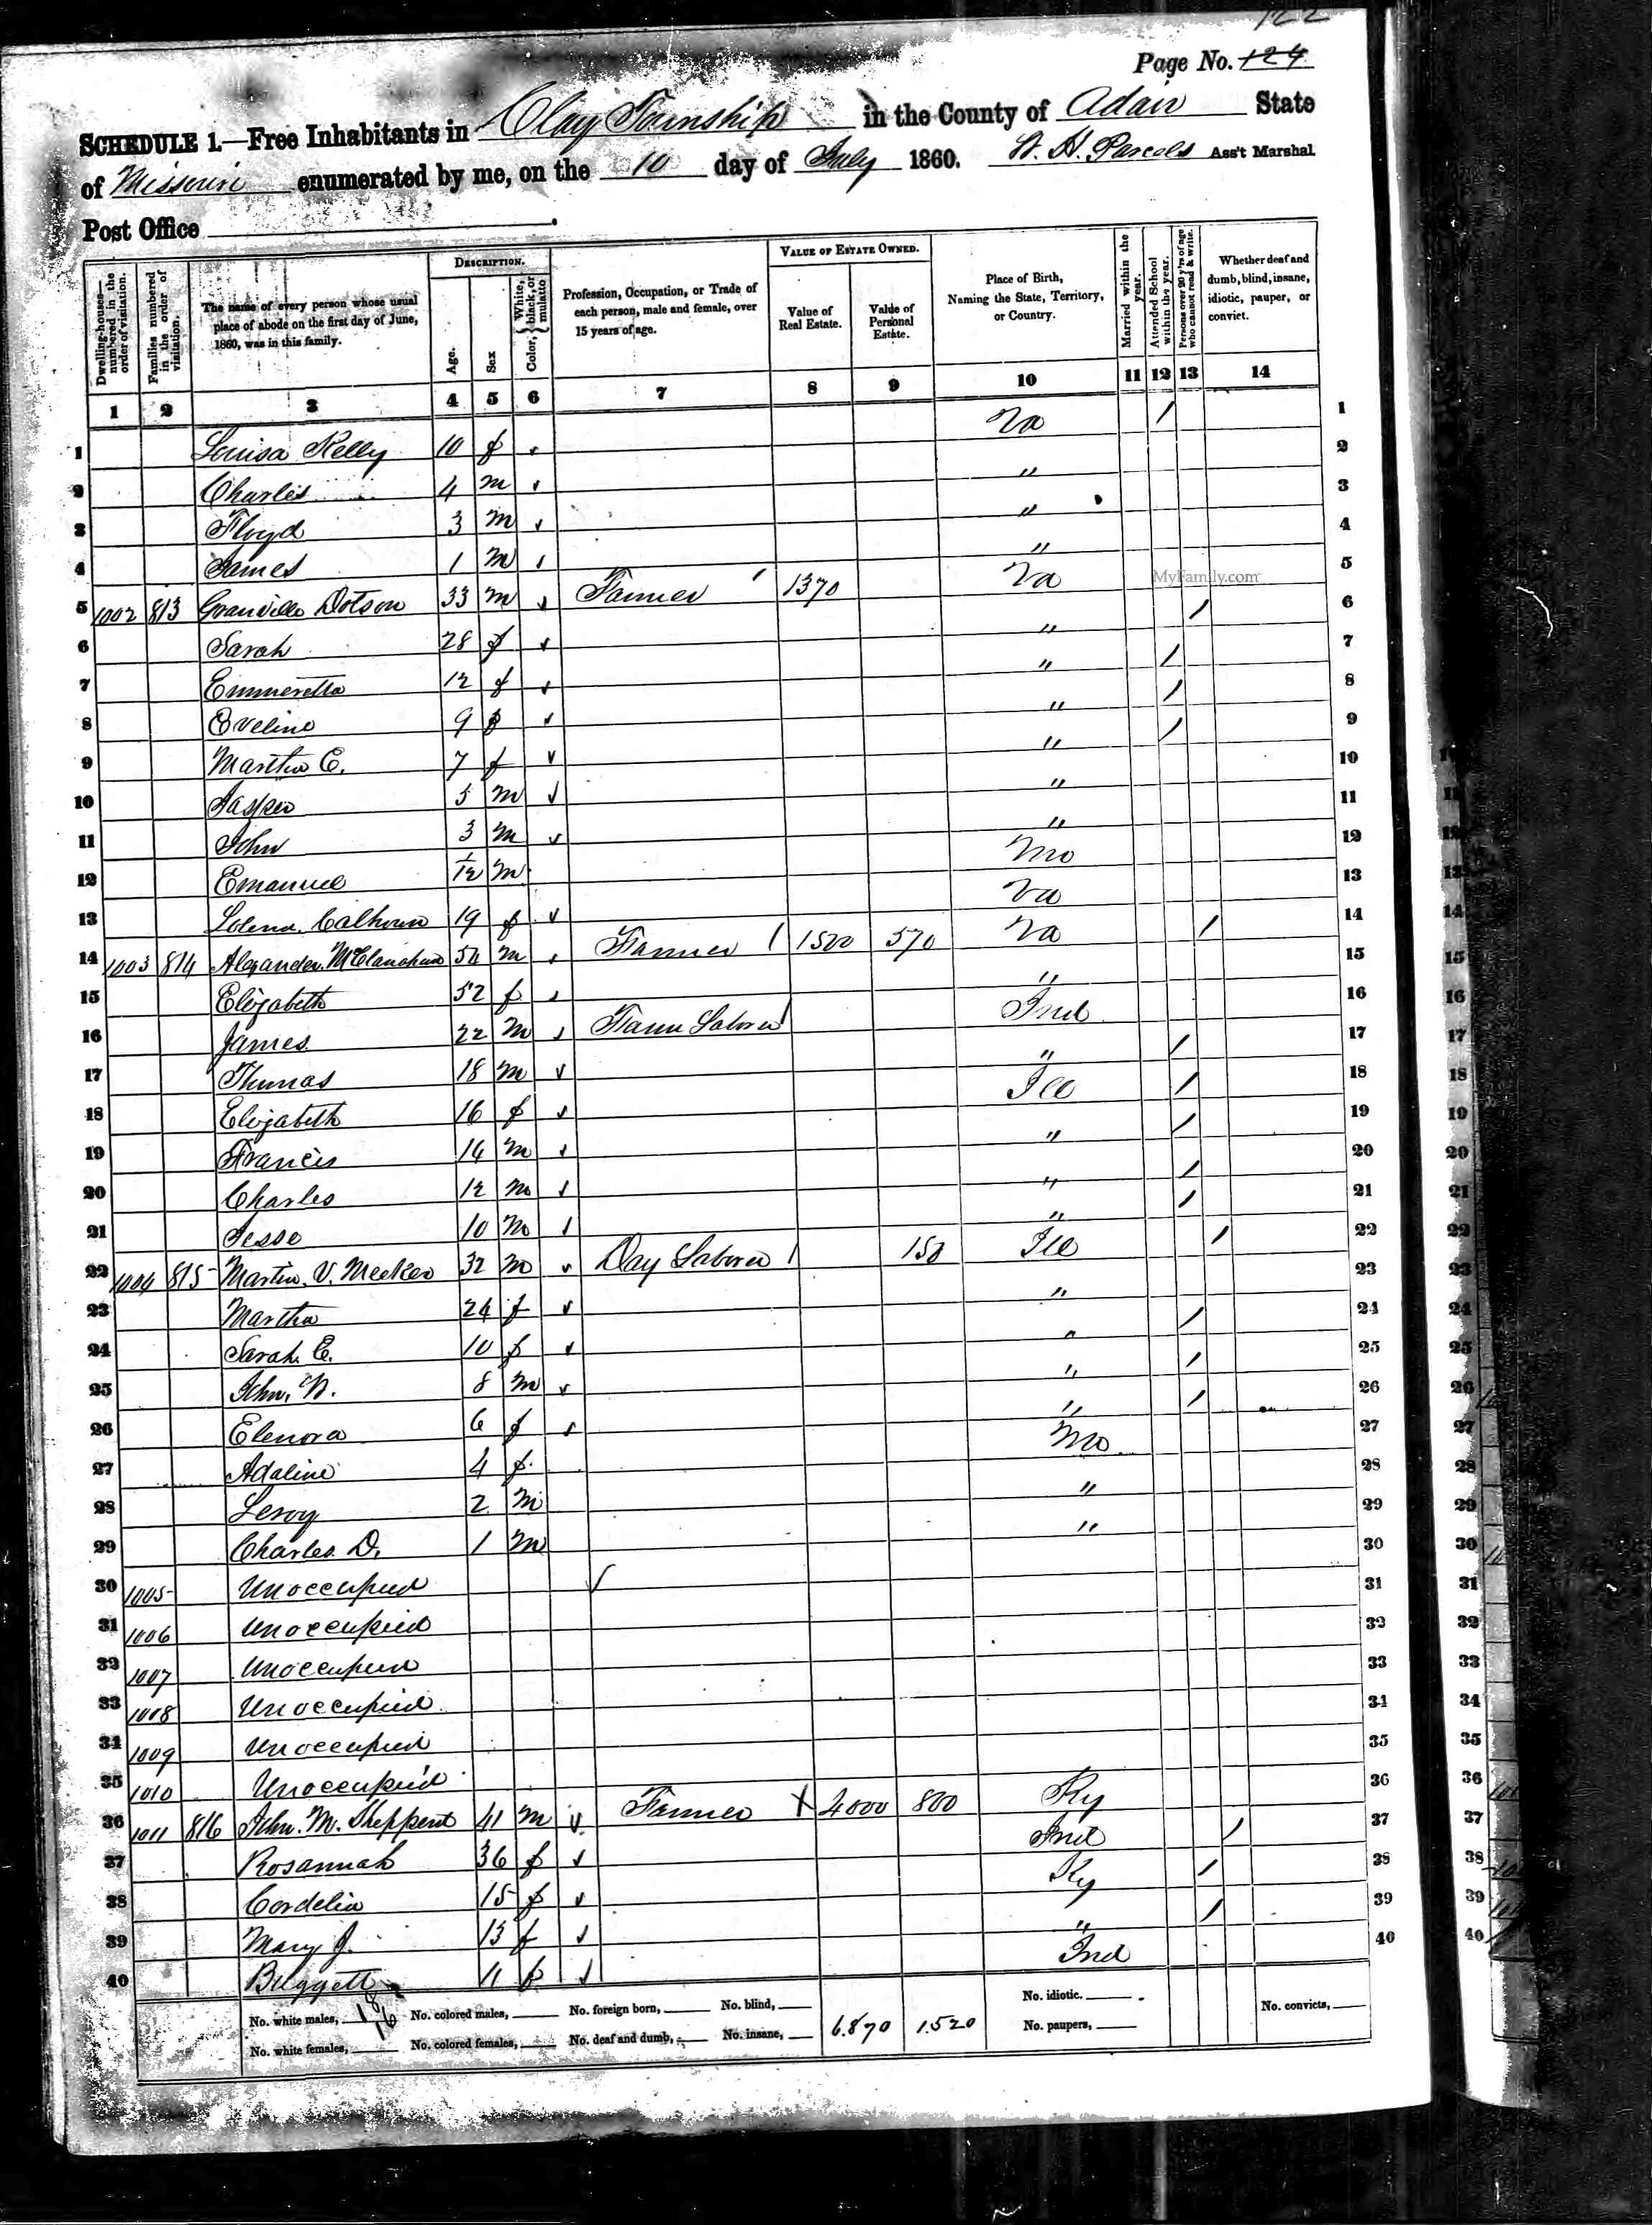 122
Page No. 124
SCHEDULE 1.—Free Inhabitants in Clay Township in the County of Adair State
of Missouri enumerated by me, on the 10 day of July 1860. W. H. Parcels Ass't Marshal
Post Office
Dwelling-houses—numbered in the order of visitation. Families numbered in the order of visitation. The name of every person whose usual place of abode on the first day of June, 1860, was in this family. DESCRIPTION. Age. Sex Color, White, black, or mulatto Profession, Occupation, or Trade of each person, male and female, over 15 years of age. VALUE OF ESTATE OWNED. Value of Real Estate. Value of Personal Estate. Place of Birth, Naming the State, Territory, or Country. Married within the year. Attended School within the year. Persons over 20 y'rs of age who cannot read & write. Whether deaf and dumb, blind, insane, idiotic, pauper, or convict.
1 2 3 4 5 6 7 8 9 10 11 12 13 14
1 Louisa Kelly 10 f Va / 1
2 Charles 4 m " 2
3 Floyd 3 m " 3
4 James 1 m " 4
5 1002 813 Granville Dotson 33 m Farmer 1370 Va 5
MyFamily.com
6 Sarah 28 f " / 6
7 Emmeretta 12 f " / 7
8 Eveline 9 f " / 8
9 Martha E. 7 f " / 9
10 Jasper 5 m " 10
11 John 3 m " 11
12 Emanuel 1/12 m Mo 12
13 Calhoun 19 f Va 13
14 1003 814 Alexander McClanahan 54 m Farmer 1500 570 Va / 14
15 Elizabeth 52 f " 15
16 James 22 m Farm Laborer Ind 16
17 Thomas 18 m " / 17
18 Elizabeth 16 f Ill / 18
19 Francis 14 m " / 19
20 Charles 12 m " / 20
21 Jesse 10 m " / 21
22 1004 815 Martin. V. Meeker 32 m Day Laborer 150 Ill / 22
23 Martha 24 f " 23
24 Sarah E. 10 f " / 24
25 John. N. 8 m " / 25
26 Elenora 6 f " / 26
27 Adaline 4 f Mo 27
28 Leroy 2 m " 28
29 Charles D. 1 m " 29
30 1005 Unoccupied 30
31 1006 Unoccupied 31
32 1007 Unoccupied 32
33 1008 Unoccupied 33
34 1009 Unoccupied 34
35 1010 Unoccupied 35
36 1011 816 John. M. Sheppard 41 m Farmer X 4000 800 Ky 36
37 Rosannah 36 f Ind / 37
38 Cordelia 15 f Ky / 38
39 Mary J. 13 f " / 39
40 11 f Ind 40
No. white males, No. colored males, No. foreign born, No. blind, 6.870 1.520 No. idiotic. No. convicts,
No. white females, No. colored females, No. deaf and dumb, No. insane, No. paupers,